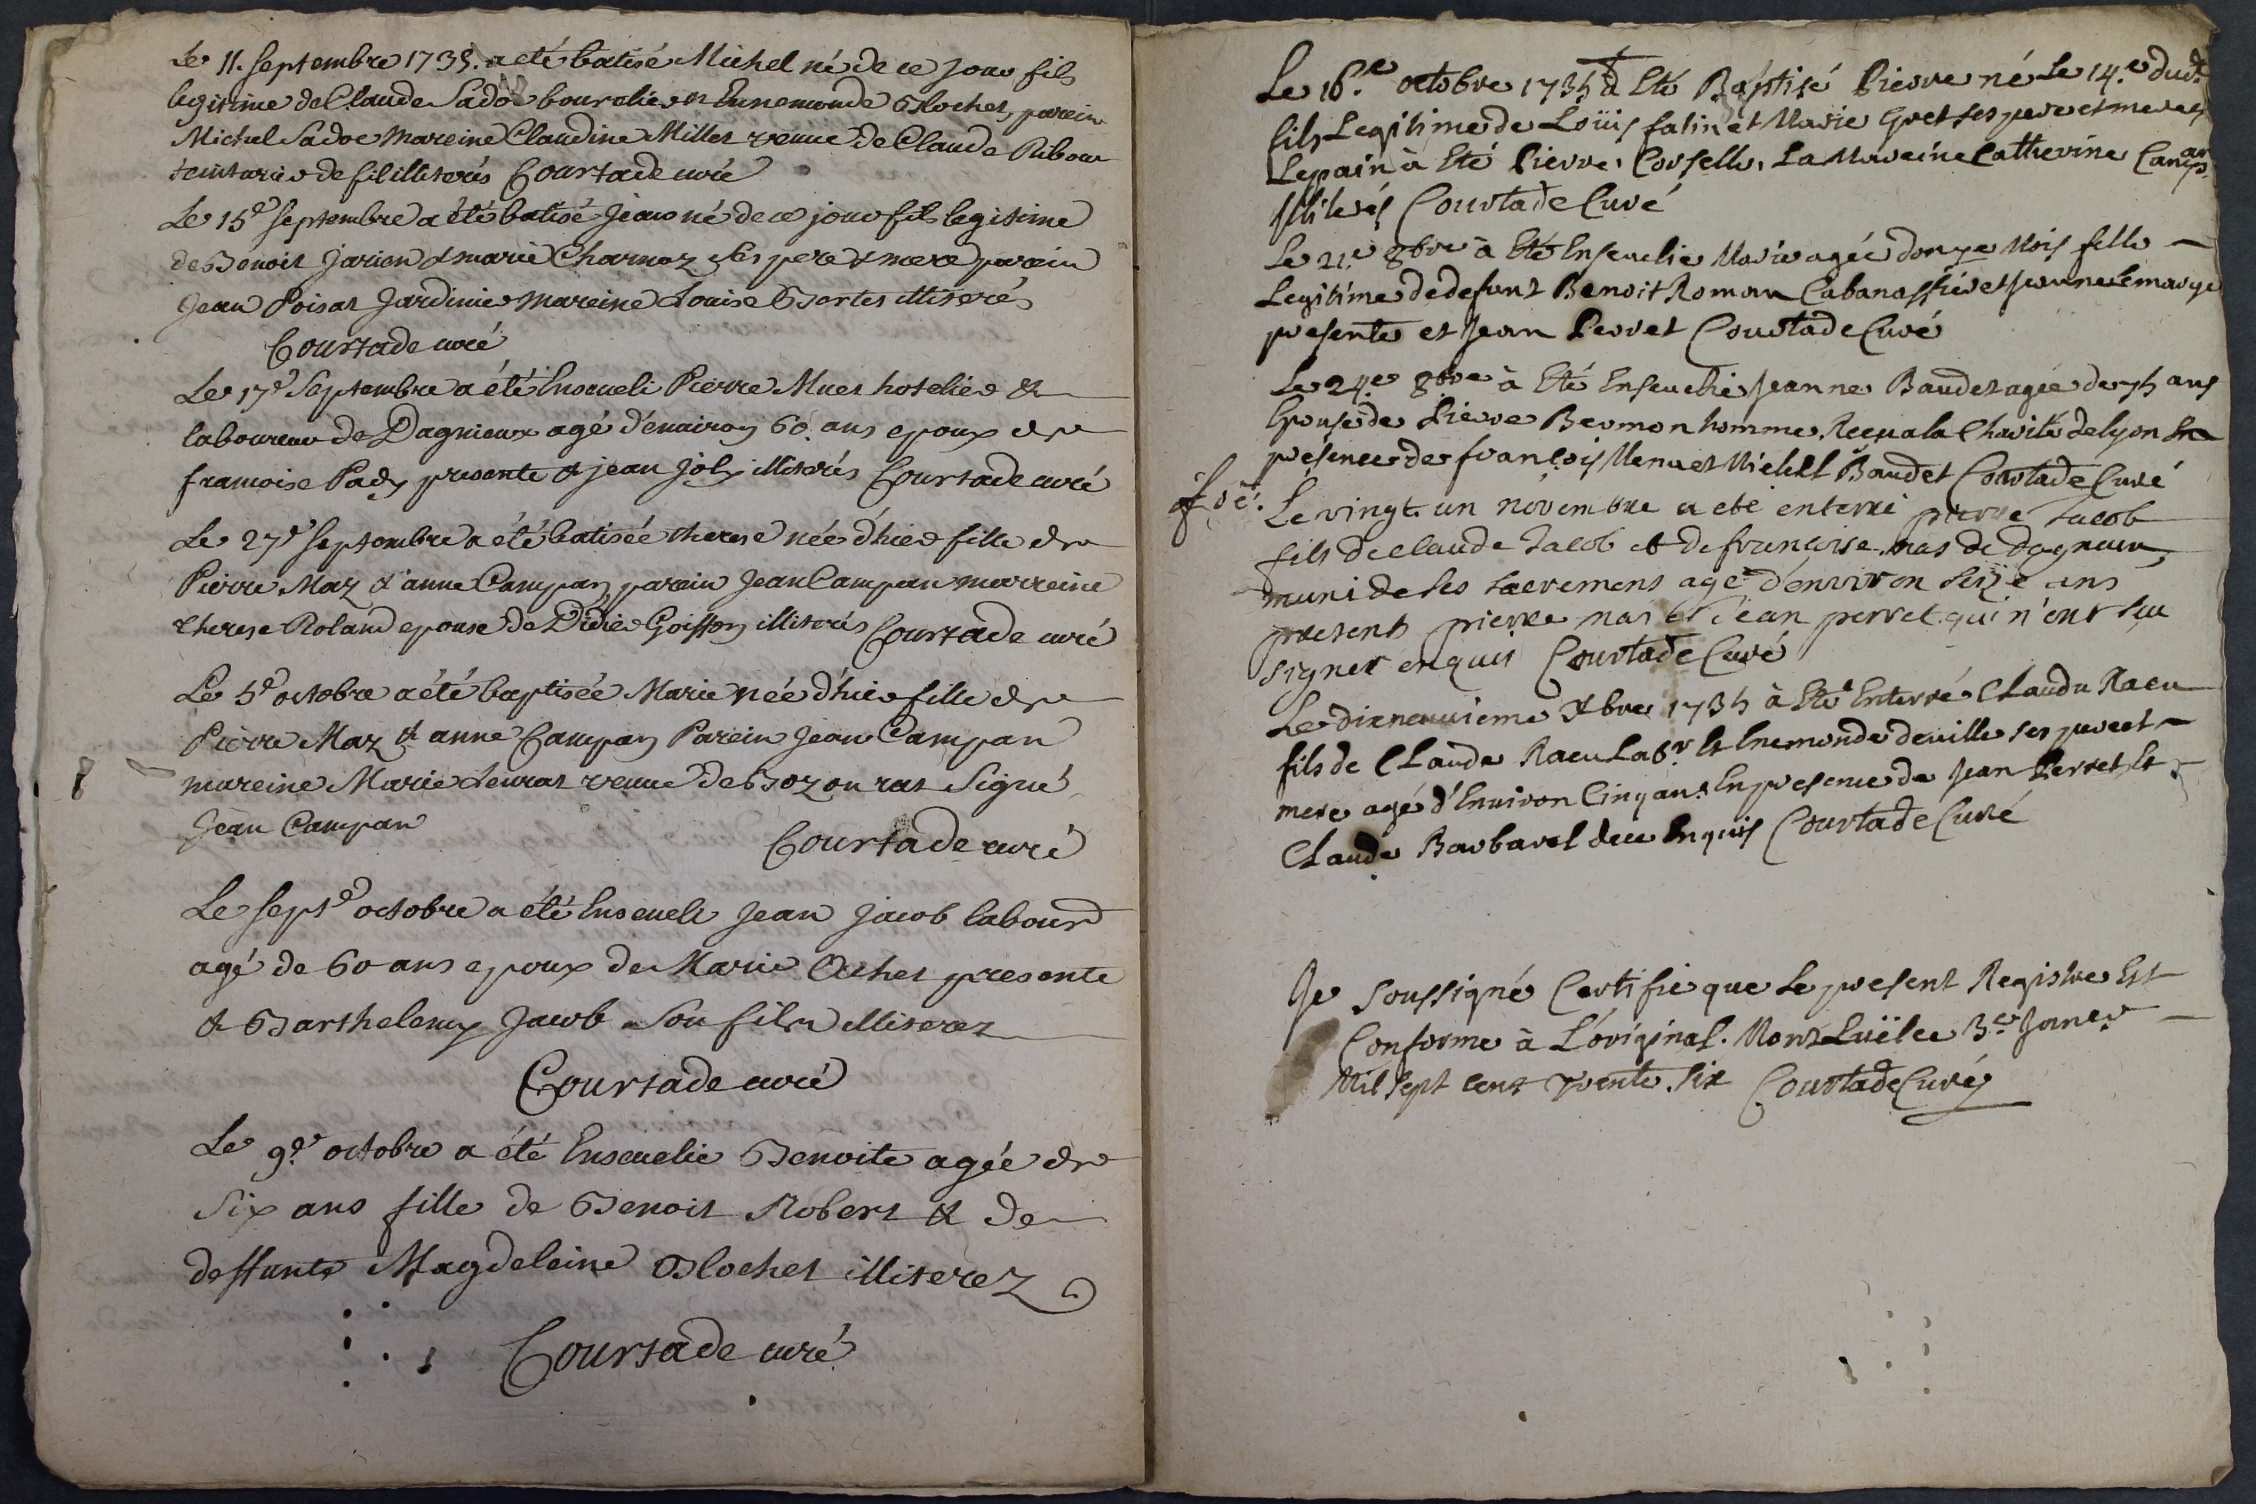 Le 11. septembre 1735. a eté batisé Michel né de ce jour fils
legitime de Claude Sadoe bourelier et Ennemonde Blochet, parein
Michel Sadoe mareine Claudine Millet veuve de Claude Ribou
teinturier de fil illiterés Courtade curé
Le 15e septembre a été batisé Jean né de ce jour fils legitime
de Benoit Jarien & marie Charnoz ses pere & mere parein
Jean Poisat Jardinier mareine Louise Bertet illiterés
Courtade curé
Le 17e Septembre a été Enseueli Pierre Muet hotelier &
laboureur de Dagnieux agé d'enuiron 60. ans epoux de
francoise Pady presente & jean joly illiterés Courtade curé
Le 27e septembre a été batisée therese née d'hier fille de
Pierre Maz & anne Campan parein Jean Campan marreine
therese Roland epouse de Didier Goiffon illiterés Courtade curé
Le 5e octobre a été baptisée Marie née d'hier fille de
Pierre Maz & anne Campan Parein Jean Campan
mareine Marie Leurat veuve de Bozon rat Signé
Jean Campan
Courtade curé
Le septe octobre a été Enseueli Jean Jacob labourr
agé de 60 ans epoux de Marie Ochet presente
& Barthelemy Jacob Son fils illiterez
Courtade curé
Le 9e octobre a été Enseuelie Benoite agée de
Six ans fille de Benoit Robert & de
deffunte Magdeleine Blochet illiterez
Courtade curé
Le 16.e octobre 1735 a Eté Baptisé Pierre né Le 14.e dudt
fils Legitime de Loüis fatin et Marie Gret ses pere et mere
Le pain à Eté Pierre Corselle, La Mareine Catherine Campan
illiterés Courtade Curé
Le 21.e 8bre à Eté Enseuelie Marie agée donze Mois fille
Legitime de defunt Benoit Roman Cabanassier et Jeanne Lemarge
presente et Jean Perret Courtade Curé
Le 24.e 8bre à Eté Enseuelie Jeanne Baudet agée de 75 ans
Epouse de Pierre Bermon homme Recu a la Charité de Lyon En
presence de françois Menu et Michel Baudet Courtade Curé
Le vingt un novembre a eté enterré pierre Jacob
fils de claude Jacob et de françoise mas de dagneux
muni de ses sacremens agé d'environ seize ans
presents pierre mas et Jean perret qui n'ont sçu
signer enquis Courtade Curé
Le dixneuuieme Xbre 1735 à Eté Enterré Claude Raeu
fils de Claude Raeu Labr Et Enemonde deuille ses pere et
mere agé d'Enuiron Cinq ans En presence de Jean Perret Et
Claude Barbarel Enquis Courtade Curé
Je soussigné Certifie que Le present Registre Est
Conforme à L'original. Mont Luël ce 3.e Janer
Mil sept cent trente six Courtade Curé